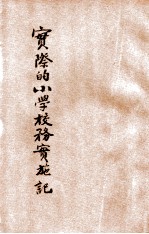 實際的小學校務實施記